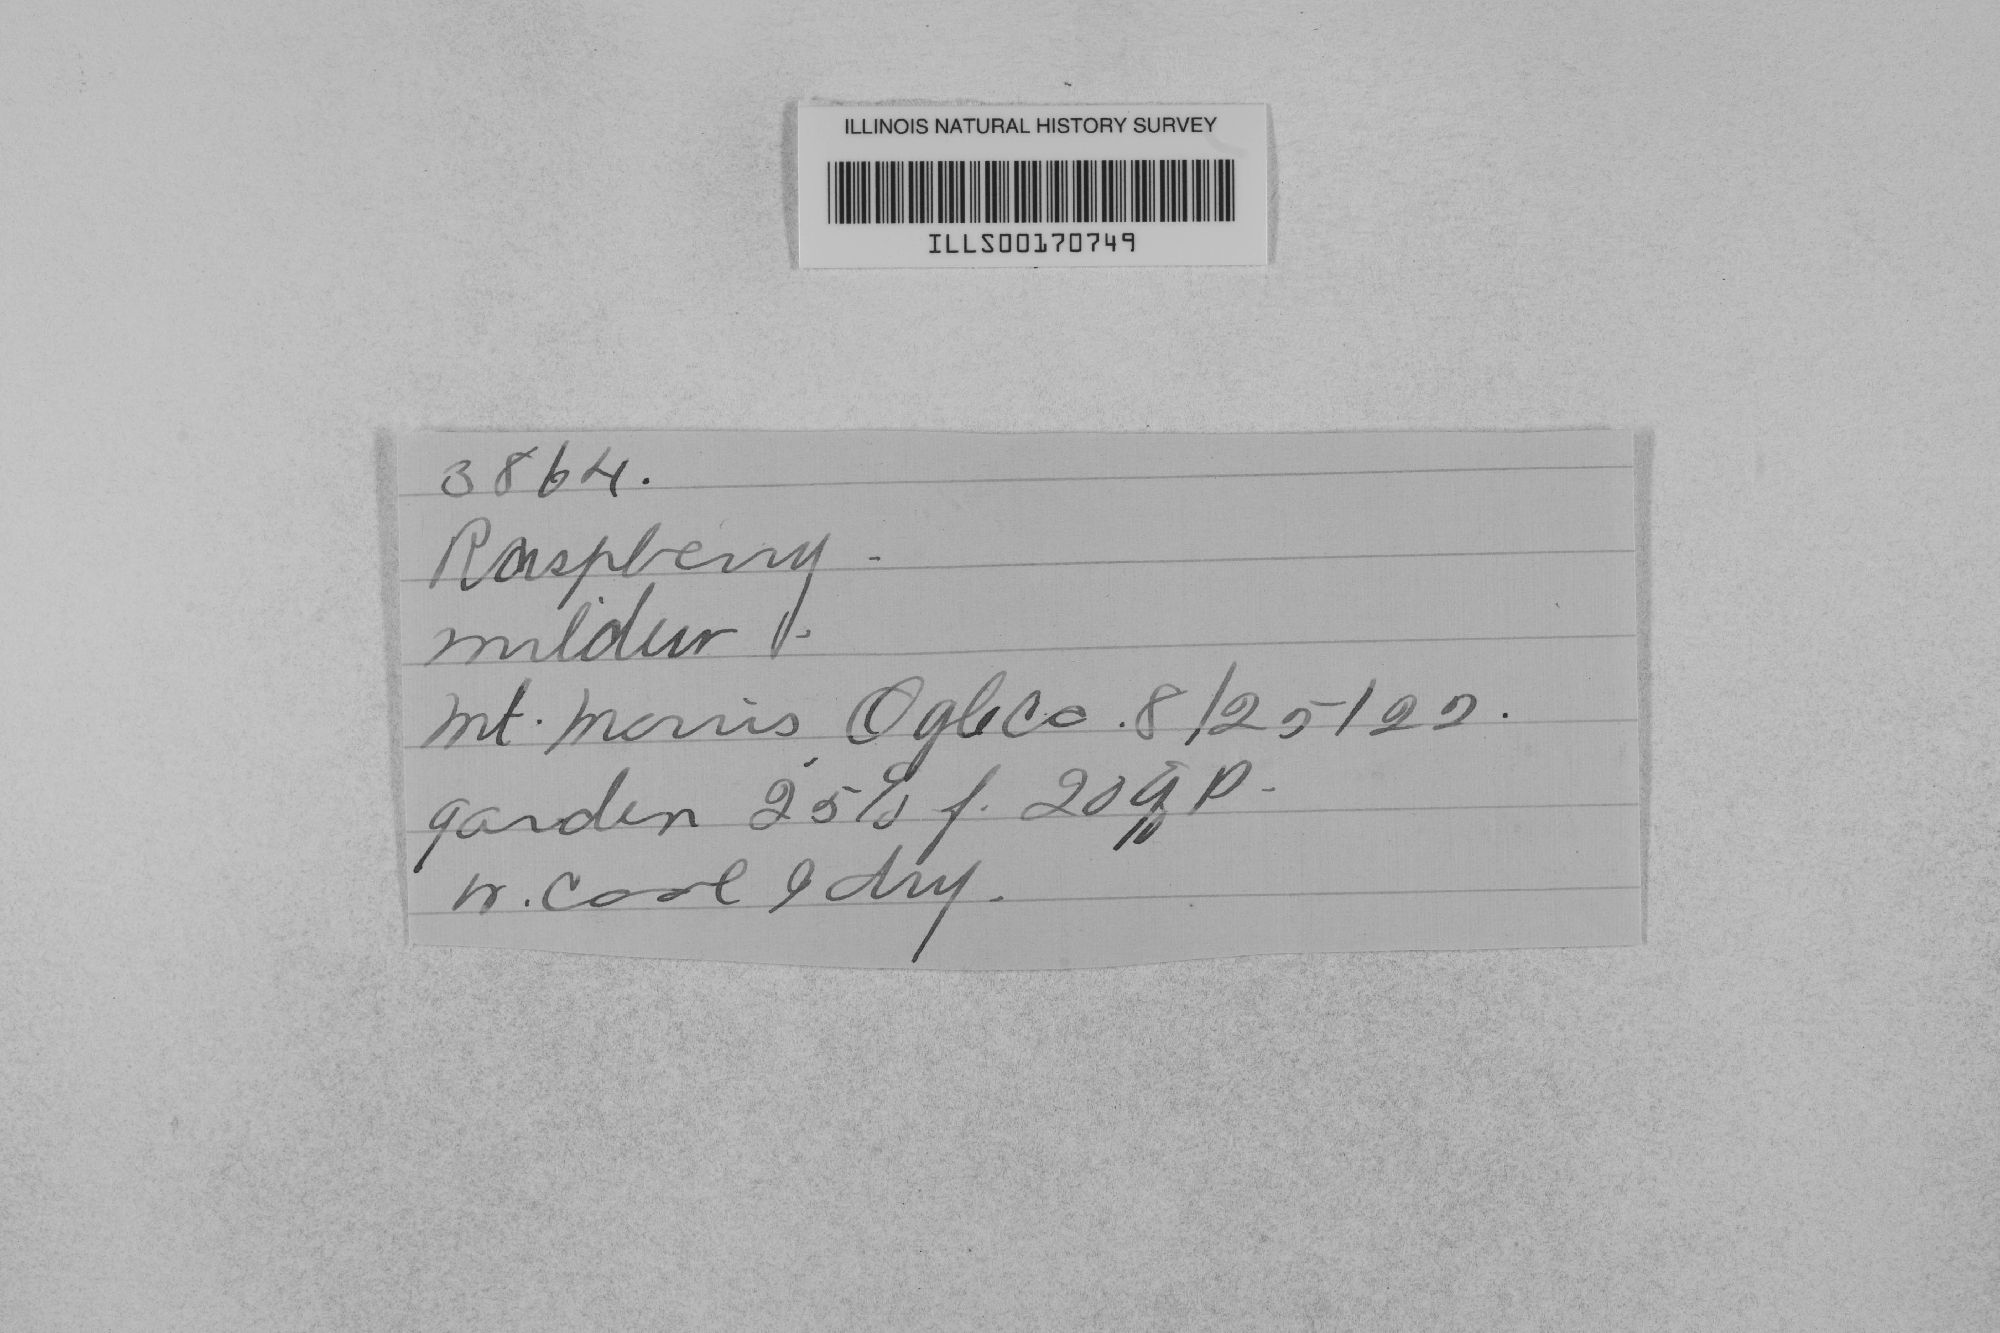 ILLINOIS NATURAL HISTORY SURVEY
ILLS00170749
3864.
Raspberry -
mildew
Mt. Morris Ogle Co. 8/25/22.
garden 25% f. 20% p.
w. cool & dry.